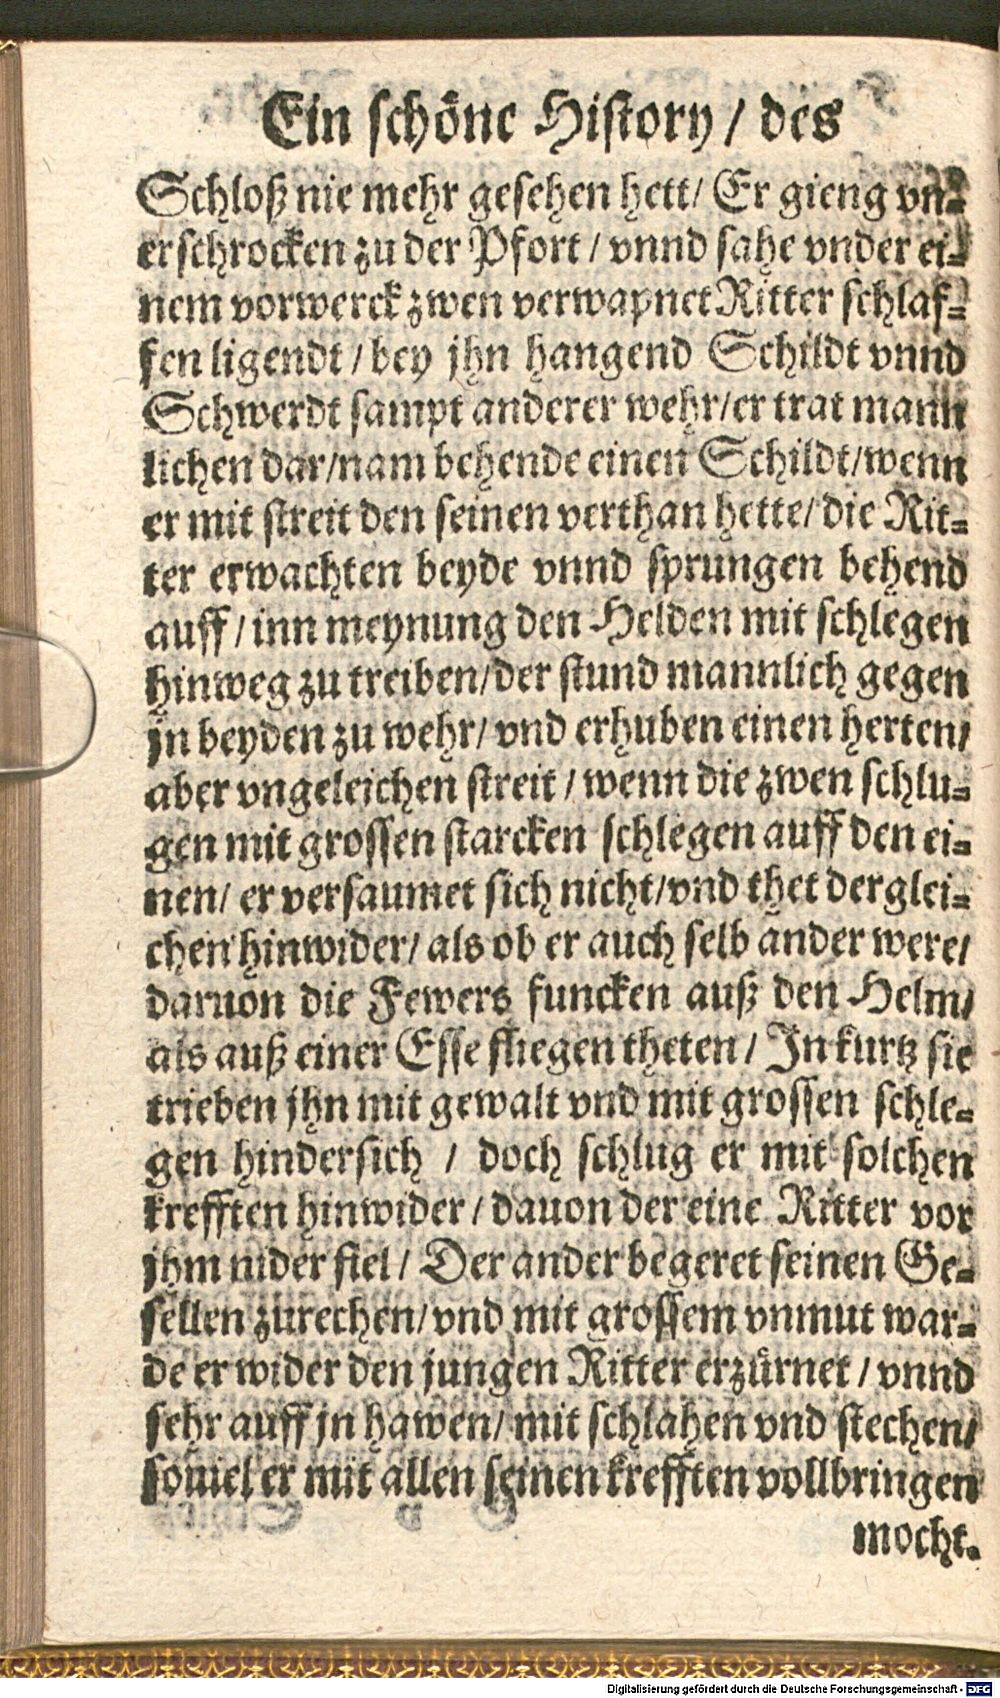 Ein schöne History / des
Schloß nie mehr gesehen hett / Er gieng vn⸗
erschrocken zu der Pfort / vnnd sahe vnder ei⸗
nem vorwerck zwen verwapnet Ritter schlaf⸗
fen ligendt / bey jhn hangend Schildt vnnd
Schwerdt sampt anderer wehr / er trat mann
lichen dar / nam behende einen Schildt / wenn
er mit streit den seinen verthan hette / die Rit⸗
ter erwachten beyde vnnd sprungen behend
auff / inn meynung den Helden mit schlegen
hinweg zu treiben / der stund mannlich gegen
jn beyden zu wehr / vnd erhuben einen herten /
aber vngeleichen streit / wenn die zwen schlu⸗
gen mit grossen starcken schlegen auff den ei⸗
nen / er versaumet sich nicht / vnd thet derglei⸗
chen hinwider / als ob er auch selb ander were /
daruon die Fewers funcken auß den Helm /
als auß einer Esse fliegen theten / In kurtz sie
trieben jhn mit gewalt vnd mit grossen schle⸗
gen hindersich / doch schlug er mit solchen
krefften hinwider / dauon der eine Ritter vor
jhm nider fiel / Der ander begeret seinen Ge⸗
sellen zurechen / vnd mit grossem vnmut war⸗
de er wider den jungen Ritter erzürnet / vnnd
sehr auff jn hawen / mit schlahen vnd stechen /
souiel er mit allen seinen krefften vollbringen
mocht.
Digitalisierung gefördert durch die Deutsche Forschungsgemeinschaft - DFG